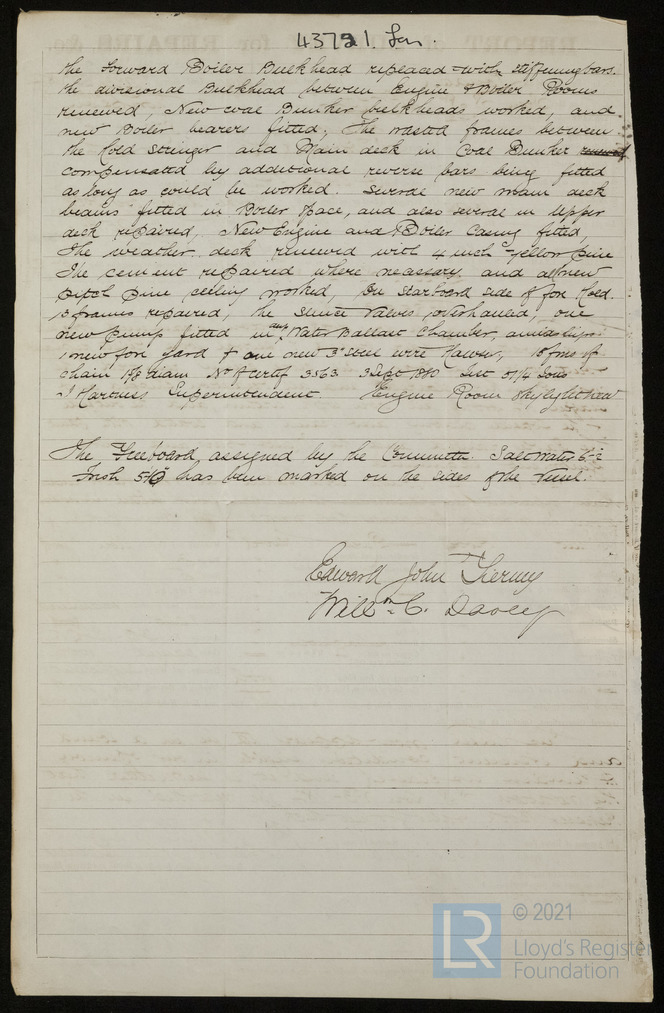 43721. Lon.
the Forward Boiler Bulkhead replaced with stiffening bars.
the divisional Bulkhead between Engine & Boiler Rooms
renewed, New coal Bunker bulkheads worked, and
new Boiler bearers fitted, The wasted frames between
the Hold Stringer and Main deck in Coal Bunker renewed
compensated by additional reverse bars being fitted
as long as could be worked. Several new main deck
beams fitted in Boiler space, and also several in Upper
deck repaired, New Engine and Boiler Casing fitted
The weather deck renewed with 4 inch yellow pine
The cement repaired where necessary and all new
pitch pine ceiling worked, On Starboard side of fore Hold.
13 frames repaired, the sluice valves overhauled, one
new pump fitted in deep Water Ballast Chamber, amidships
1 new fore yard & one new 3" steel wire Hawser, 15 fms of
chain 1 7/8 diam No of Certif 3563 3 Sept 1880 Test 51/4 Tons
J Harness Superintendent Engine Room Skylight new
The Freeboard assigned by the Committee Salt Water 6-2
Fresh has been marked on the sides of the Vessel.
Edward John Tierney
Willm C. Davey
© 2021
LR
Lloyd's Register
Foundation